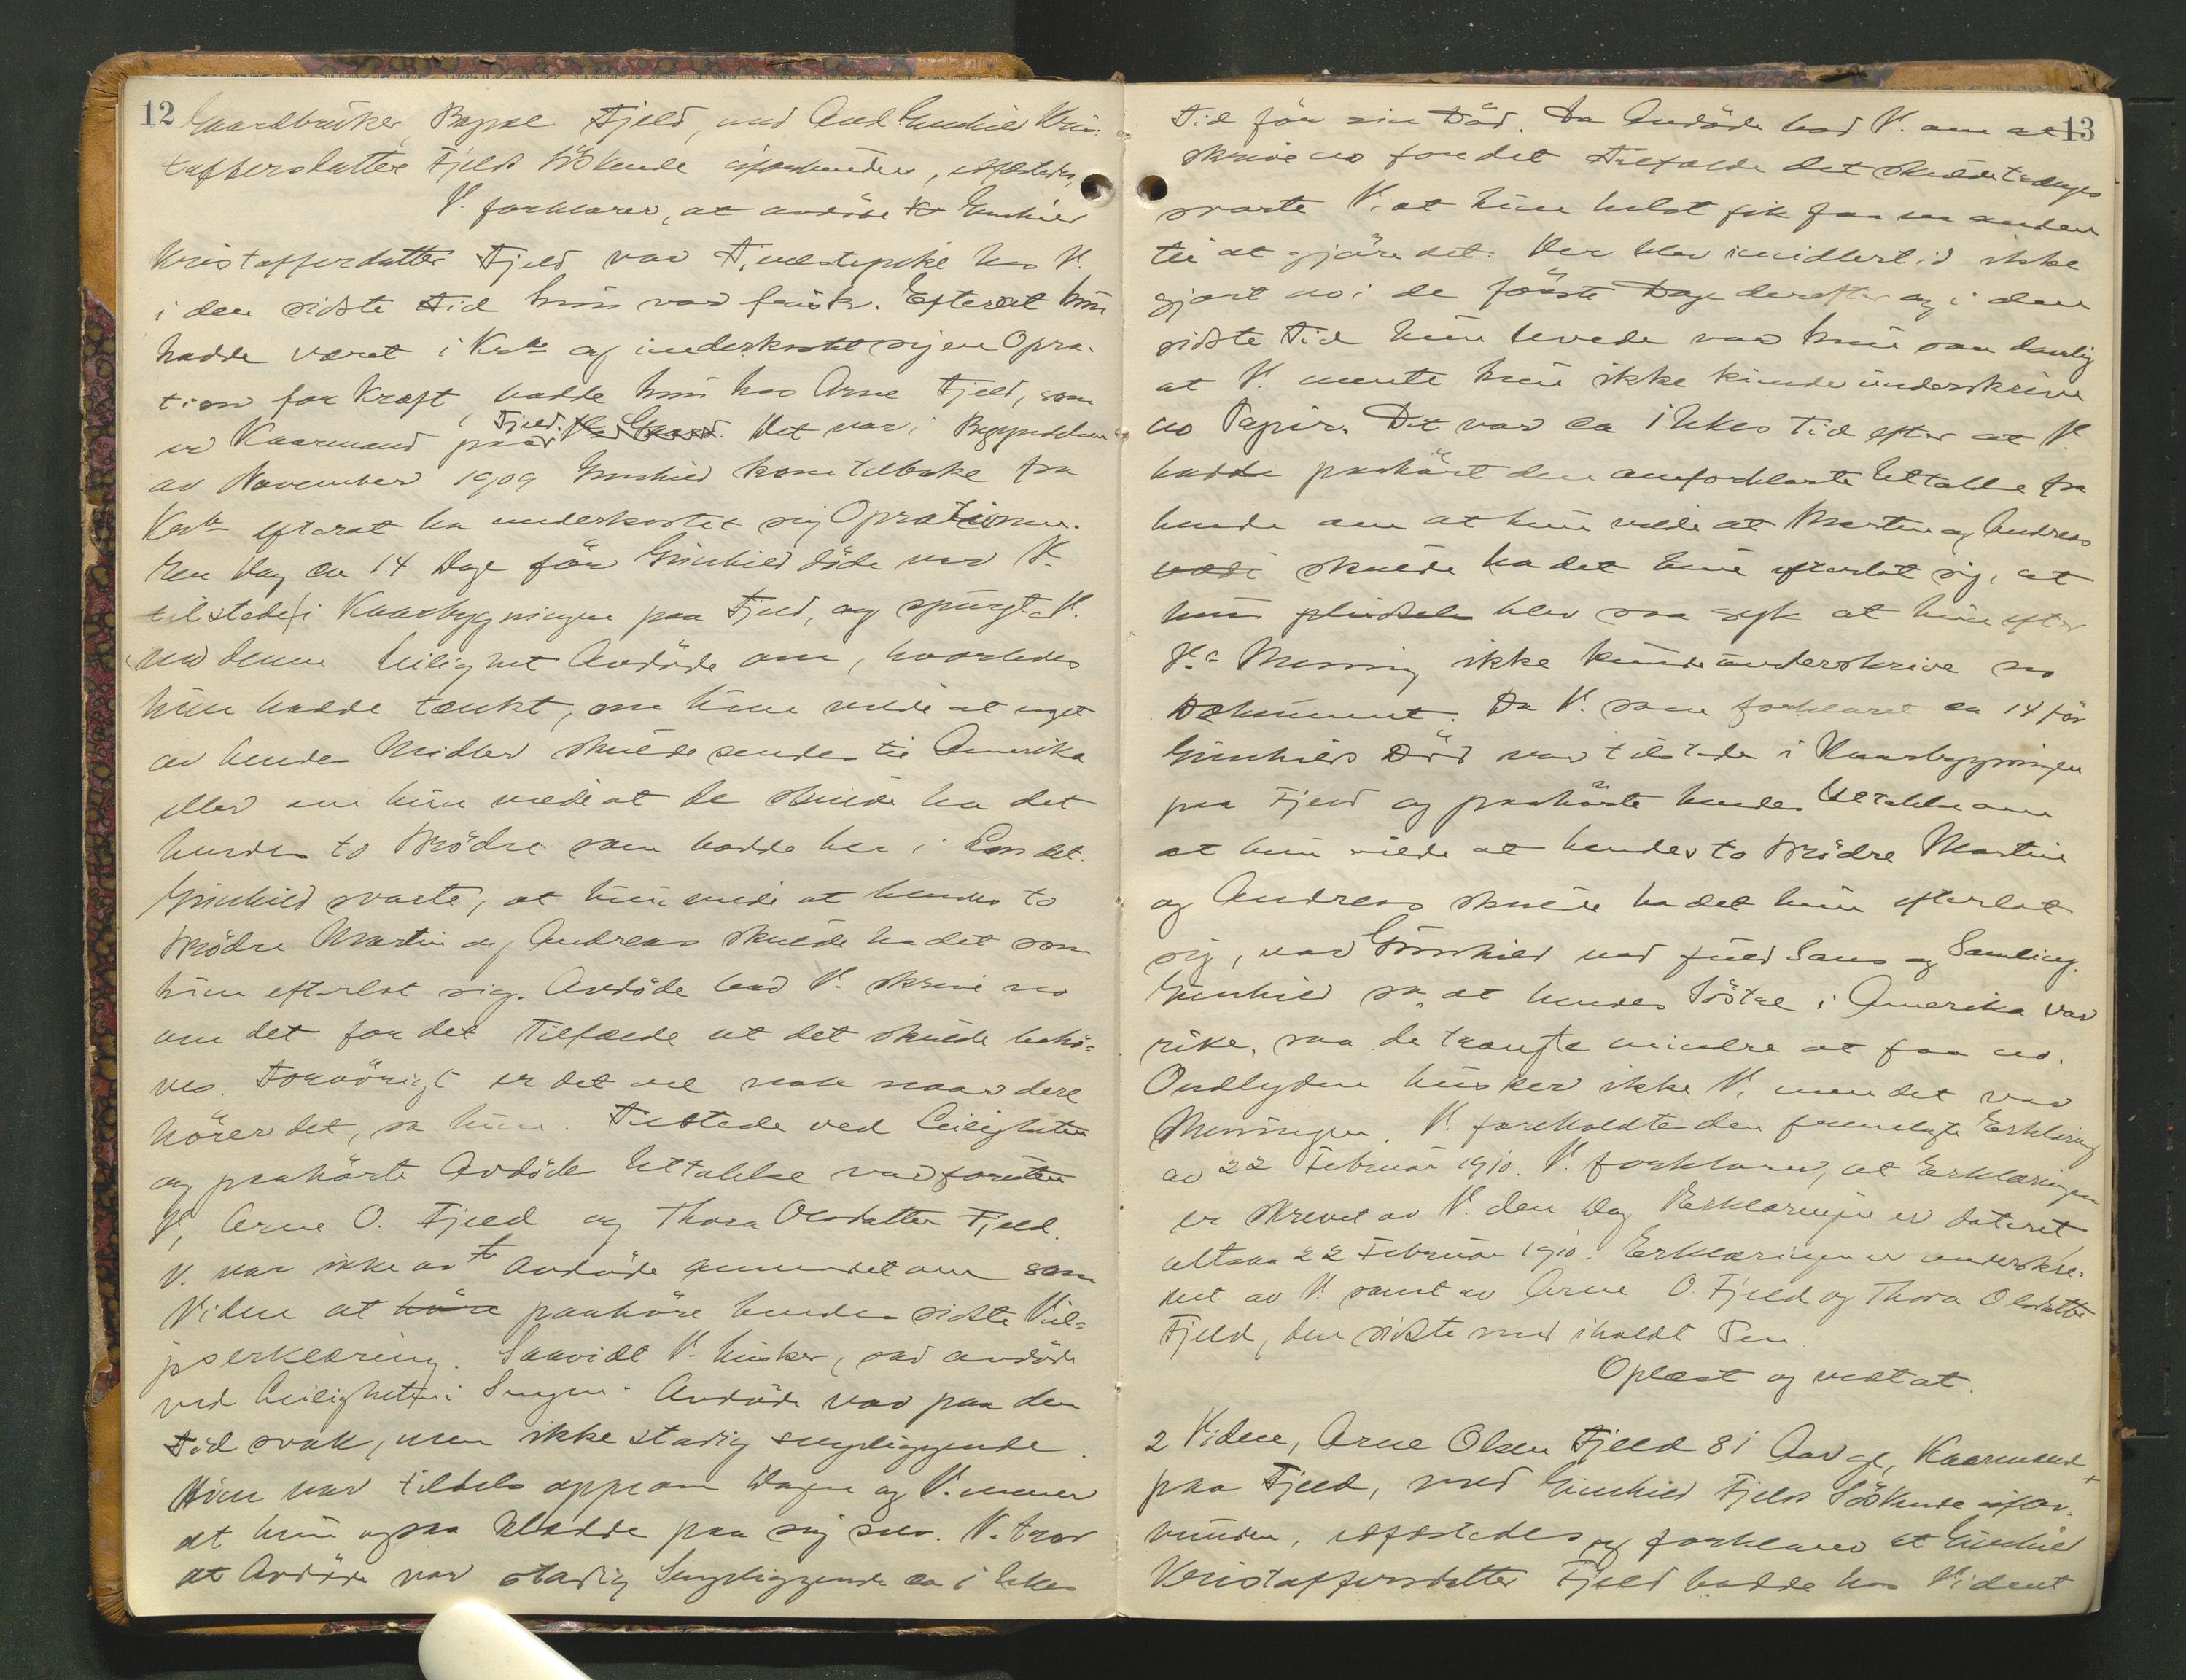 12
Gaardbruker, Fjeld, med Avd. Gunhild Kris-
toffersdatter Fjeld Söskende uforbunden, edfæstedes,
V. forklarer, at avdöde Gunhild
Kristoffersdatter Fjeld var Tjenestepike hos V.
i den sidste Tid hun var frisk. Efterat hun
hadde været i Kr.a og underkastet sig en Opra-
tion for Kræft, hadde hun hos Arne Fjeld, som
er Kaarmand paa Fjeld. Det var i Begyndelsen
av November 1909 Gunhild kom tilbake fra
Kr.a efterat ha underkastet sig Oprationen.
En Dag ca 14 Dage för Gunhild döde var V.
tilstede i Kaarbygningen paa Fjeld, og spurgte V.
ved denne Leilighet Avdöde om, hvorledes
hun hadde tænkt, om hun vilde at noget
av hendes Midler skulde sendes til Amerika
eller om hun vilde at de skulde ha det
hendes to Brödre som hadde her i Landet.
Gunhild svarte, at hun vilde at hendes to
Brödre Martin og Andreas skulde ha det som
hun efterlot sig. Avdöde bad V. skrive no
om det for det Tilfælde at det skulde behö-
ves. Forövrigt er det vel nok naar dere
hörer det, sa hun. Tilstede ved Leiligheten
og paahörte Avdödes Uttalelse var foruten
V, Arne O. Fjeld og Thora Olsdatter Fjeld.
V. var ikke av Avdöde anmodet om som
Vidne at höre paahöre hendes sidste Vil-
jeserklæring. Saavidt V. husker, sad avdöde
ved Leiligheten i Sengen. Avdöde var paa den
Tid svak, men ikke stadig sengeliggende.
Hun var tildels oppe om Dagen og V. mener
at hun ogsaa klædde paa sig selv. V. tror
at Avdöde var stadig Sengeliggende ca 1 Ukes
13
Tid för sin Död. Da Avdöde bad V. om at
skrive no for det Tilfælde det skulde trænges
svarte V. at hun helst fik faa en anden
til at gjöre det. Der blev imidlertid ikke
gjort no i de förste Dage derefter og i den
sidste Tid hun levede var hun saa daarlig
at V. mente hun ikke kunde underskrive
no Papir. Det var ca 1 Ukes Tid efter at V.
hadde paahört den omforklarte Uttalelse fra
hende om at hun vilde at Martin og Andreas
skulde ha det hun efterlot sig, at
hun pludselig blev saa syk at hun efter
V.s Mening ikke kunde underskrive no
Dokument. Da V. som forklaret ca 14 för
Gunhilds Död var tilstede i Kaarbygningen
paa Fjeld og paahörte hendes Uttalelse om
at hun vilde at hendes to Brödre Martin
og Andreas skulde ha det hun efterlot
sig, var Gunhild ved fuld Sans og Samling.
Gunhild sa at hendes Söstre i Amerika var
rike, saa de trængte mindre at faa no.
Ordlyden husker ikke V. men det var
Meningen. V. foreholdtes den fremlagte Erklæring
av 22 Februar 1910. V. forklarer, at Erklæringen
er skrevet av V. den Dag Erklæringen er dateret
altsaa 22 Februar 1910. Erklæringen er underskre-
vet av V. samt av Arne O. Fjeld og Thora Olsdatter
Fjeld, den sidste med iholdt Pen
Oplæst og vedtat.
2 Vidne, Arne Olsen Fjeld 81 Aar gl, Kaarmand
paa Fjeld, med Gunhild Fjeld Söskende ufor-
bunden, edfæstedes og forklarer at Gunhild
Kristoffersdatter Fjeld hadde hos Vidnet